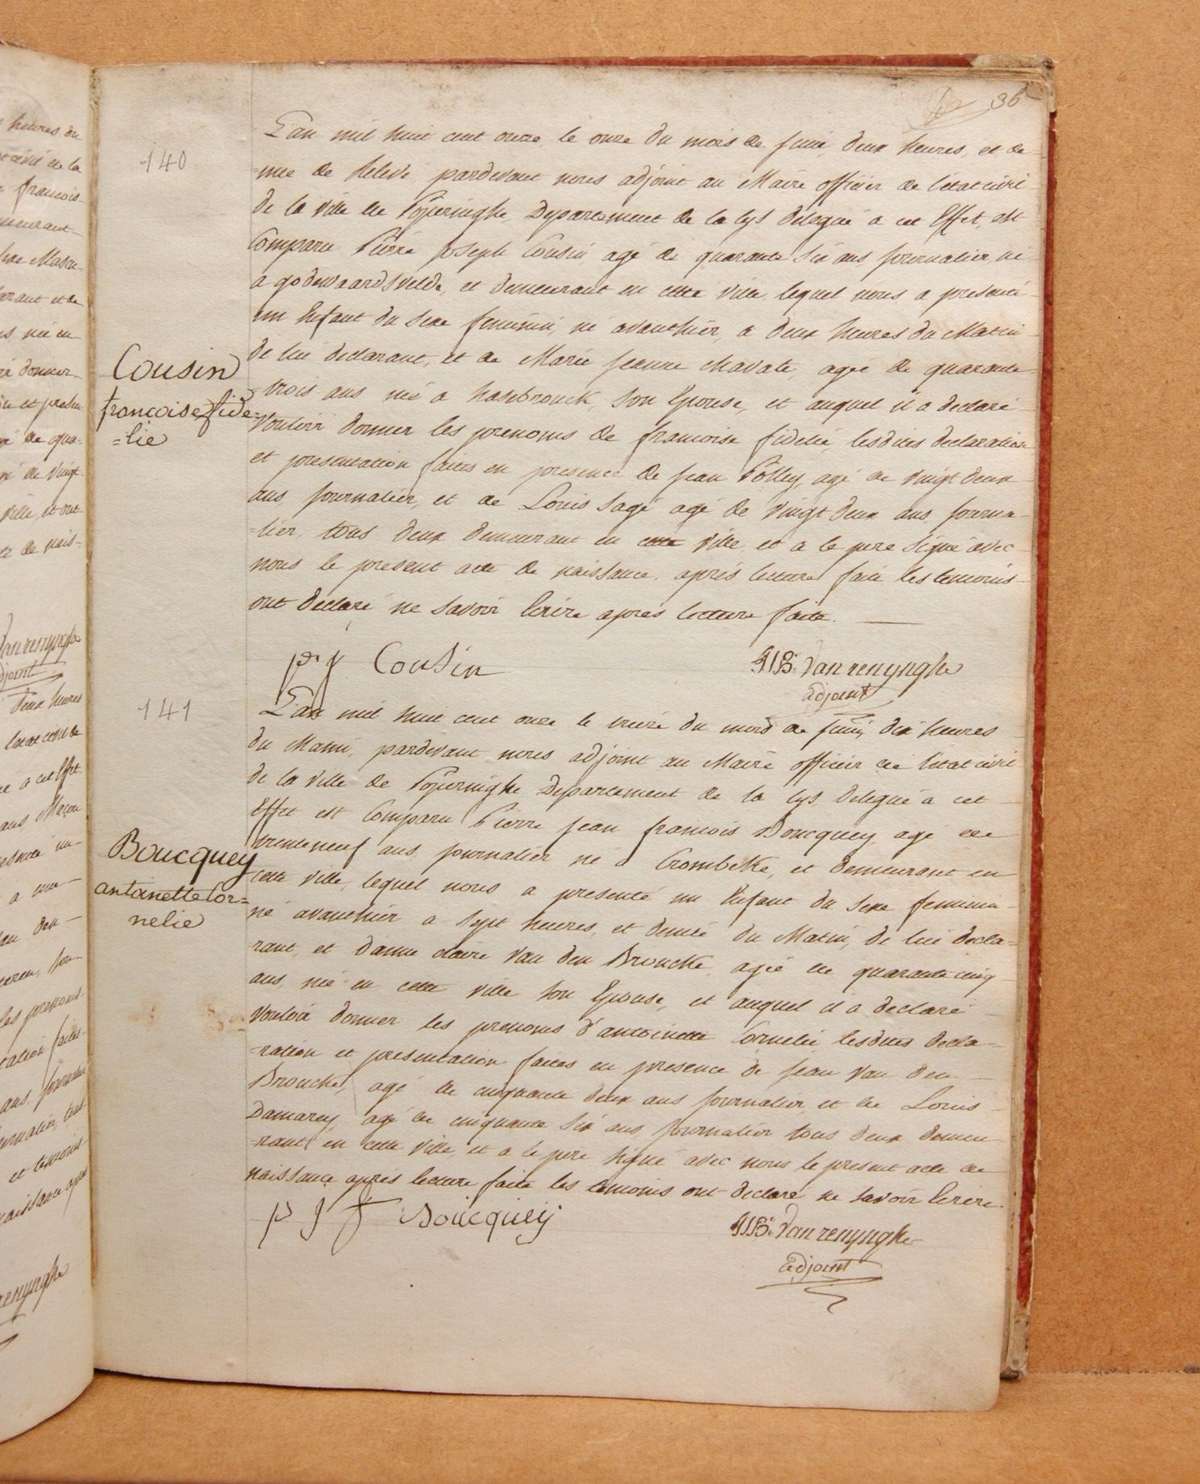 36
140
L'an mil huit cent onze, le onze du mois de juin, deux heures, et de-
-mie de Relevé pardevant nous adjoint au Maire officier de l'état civil
de la ville de Poperinghe Departement de la Lys délégué a cet Effet, est
Comparu Pierre Joseph Cousin agé de quarante Six ans journalier né
a godewaardsvelde, et demeurant en cette ville, lequel nous a presenté
un Enfant du Sexe feminin, né avanthier, a deux heures du Matin
de lui declarant, et de Marie Jeanne Mavate, agée de quarante
Cousin
francoise fide-
=lie
trois ans née a hasebrouck, Son Epouse, et auquel il a declaré
vouloir donner les prenoms de francoise fidelie, lesdites declaration
et presentation faites en presence de jean Polley agé de vingt deux
ans journalier, et de Louis Sagé agé de vingt deux ans journa-
-lier, tous deux demeurant en cette ville et a le pere Signé avec
nous le present acte de naissance, après lecture faite les temoins
ont declaré ne savoir Ecrire après lecture faite.
p j Cousin
JJB. Vanrenynghe
adjoint
141
L'an mil huit cent onze le treize du mois de juin dix heures
du Matin, pardevant nous adjoint au Maire officier de l'état civil
de la ville de Poperinghe Departement de la Lys delegué a cet
Effet est Comparu Pierre jean francois Boucquey, agé de
Boucquey
antoinette Cor=
nelie
trenteneuf ans journalier né a Crombeke, et demeurant en
cette ville, lequel nous a presenté un Enfant du Sexe feminin
né avanthier a Sept heures, et demie du Matin, de lui decla-
rant, et d'anne claire Van den Broucke, agée de quarante cinq
ans née en cette ville Son Epouse, et auquel il a declaré
vouloir donner les prenoms d'antoinette Cornelie lesdites decla-
-ration et presentation faites en presence de jean Van den
Broucke, agé de cinquante deux ans journalier et de Louis
Damarey agé de cinquante Six ans journalier tous deux demeu-
-rant en cette ville, et a le pere signé avec nous le present acte de
naissance après lecture faite les temoins ont declaré ne savoir Ecrire.
p J f Boucquey
JJB. Vanrenynghe
adjoint